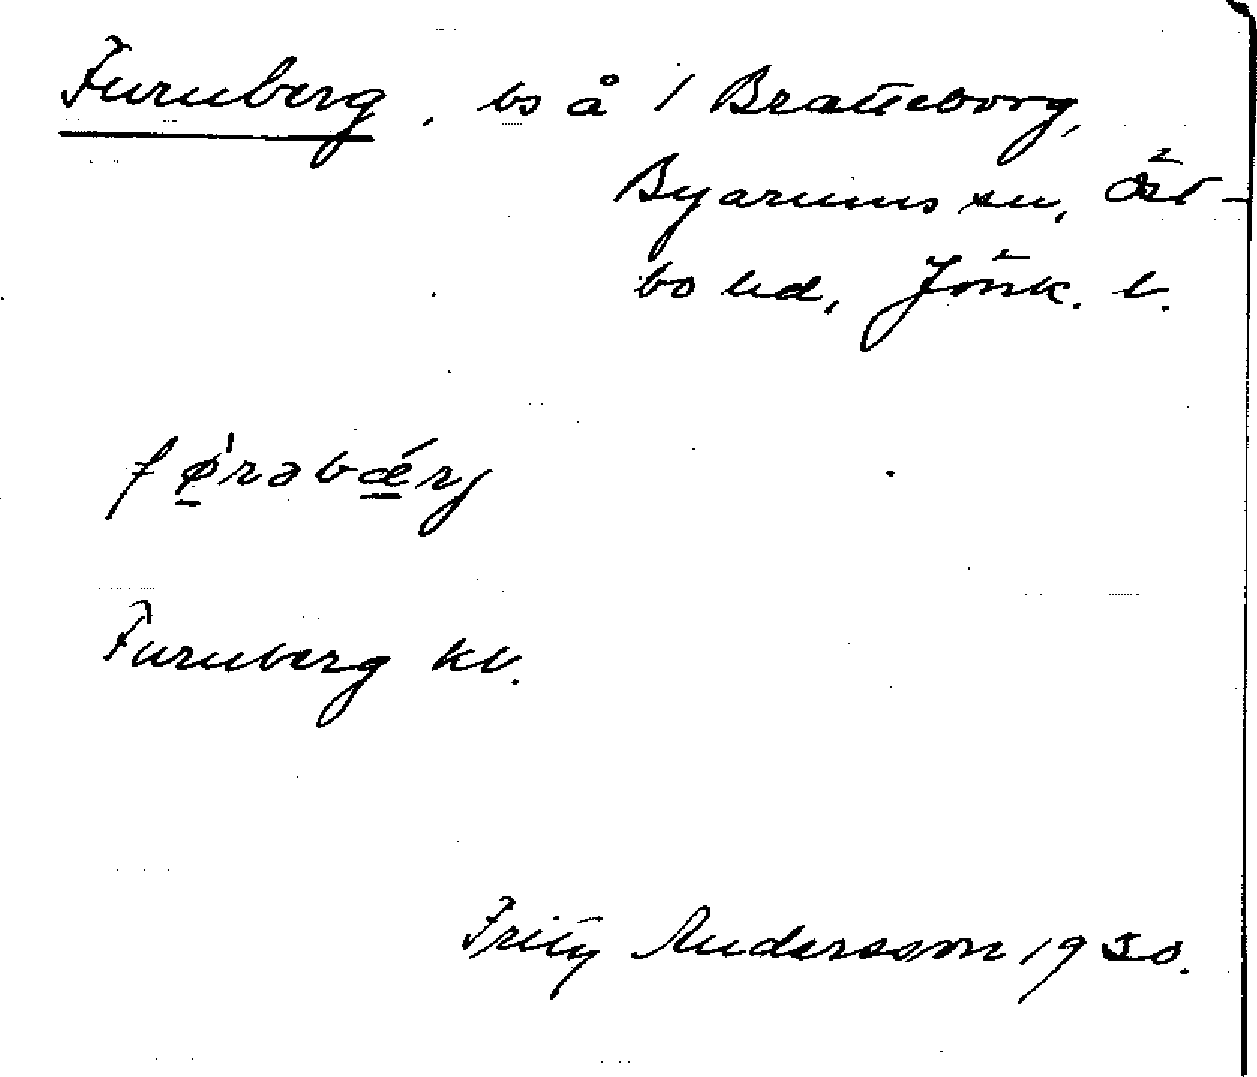 Furuberg, bs å 1 Bratteborg,
Byarums sn, Öst-
bo hd, Jönk. l.
fø̱̀rəbǽ̱rj
Furuberg kb.
Fritz Andersson 1930.